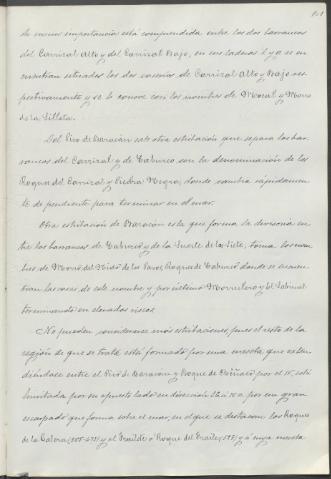 de menor importancia está comprendida entre los dos barrancos
del Carrizal Alto y del Carrizal Bajo, en sus laderas E y O se en-
cuentran situados los dos caseríos de Carrizal Alto y Bajo res-
pectivamente y se le conoce con los nombres de Moral y Morro
de la Silleta.
Del Pico de Baracán sale otra estribación que separa los bar-
rancos del Carrizal y de Taburco con la denominación de los
Roques del Carrizal y Piedra Negra, donde cambia rápidamen-
te de pendiente para terminar en el mar.
Otra estribación de Baracán es la que forma la divisoria en-
tre los barrancos de Taburco y de la Suerte de la Siete, toma los nom-
bres de Morro del Nido de los Pavos, Roque de Taburco donde se encuen-
tran las casas de este nombre y por último Morretero y El Sabinal
terminando en elevados riscos.
No pueden considerarse más estribaciones, pues el resto de la
región de que se trata está formado por una meseta, que exten-
diéndose entre el Pico de Baracán y Roque de por el N. está
limitada por su opuesto lado en dirección a por un gran
escarpado que forma sobre el mar, en el que se destacan los Roques
de la Galera y el Fraile o Roque del Fraile y a cuya meseta